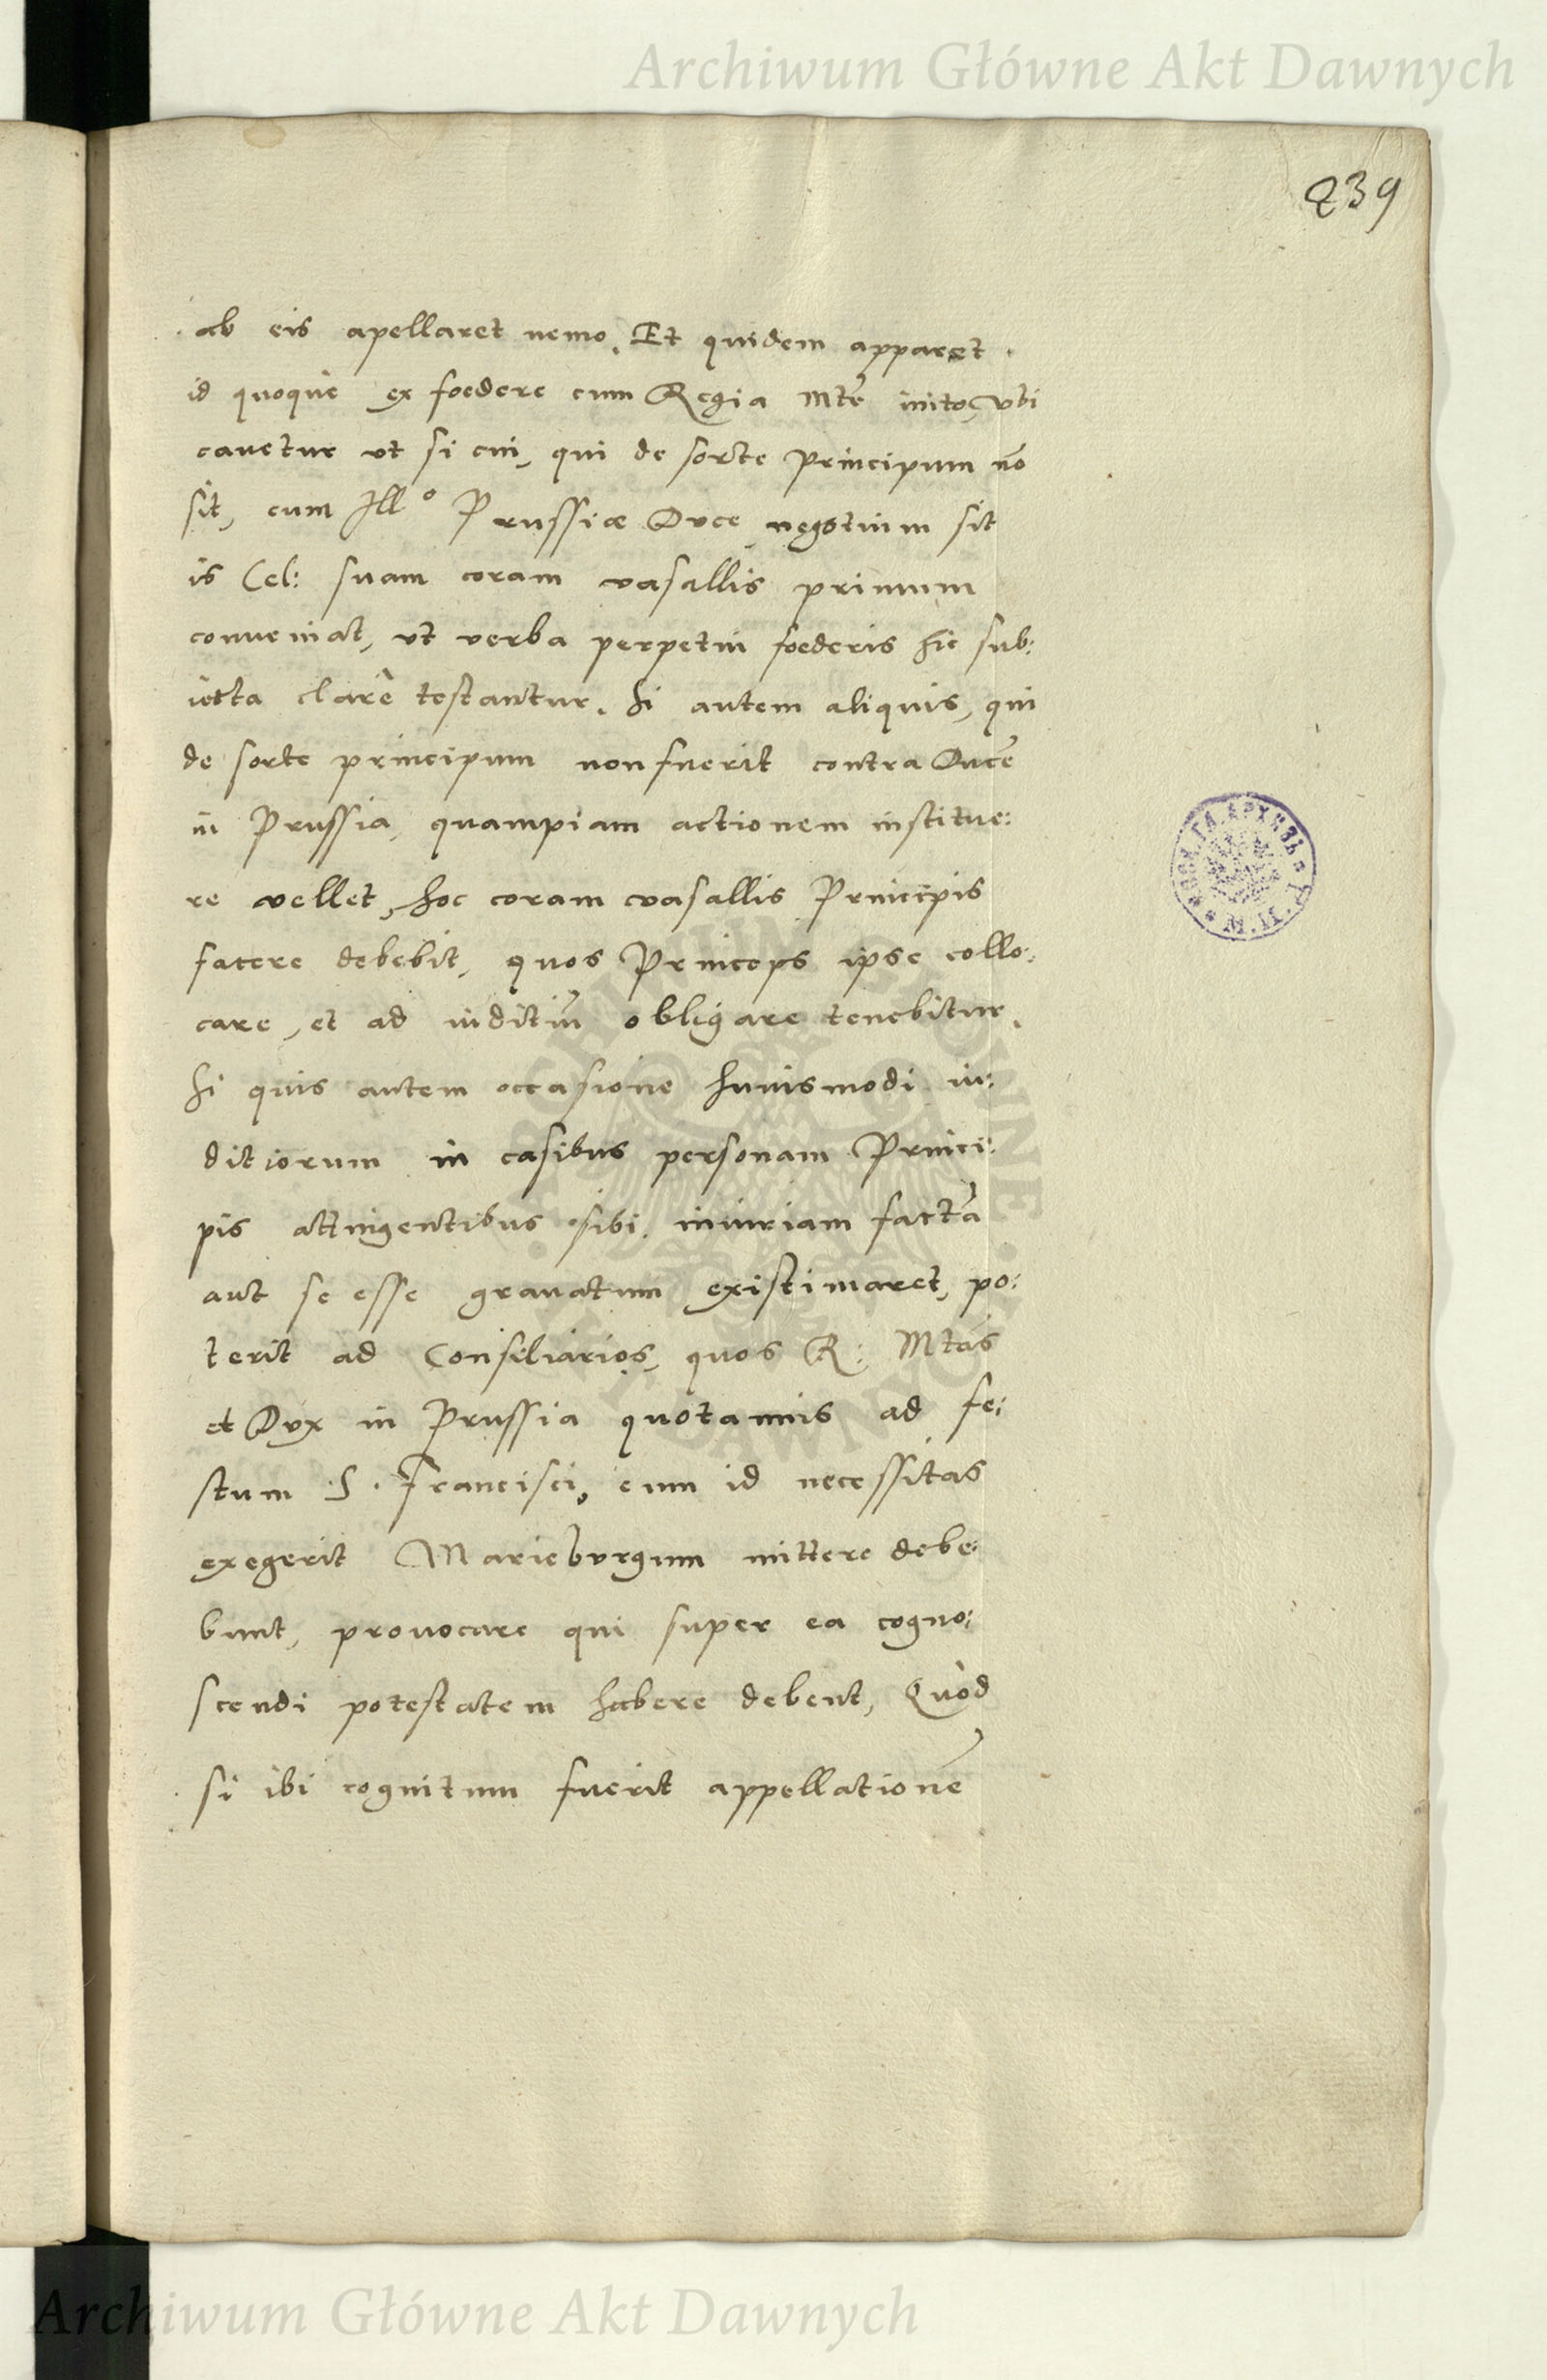 Archiwum Główne Akt Dawnych
239
ab eis apellaret nemo. Et quidem apparet
id quoque ex foedere cum Regia Mte inito, vbi
cauetur vt si cui, qui de sorte principum nō
sit, cum Illo Prussiæ Duce negotium sit
is Cel: suam coram vasallis primum
conueniat, vt verba perpetui foederis hic sub:
iecta clarè testantur. Si autem aliquis, qui
de sorte principum non fuerit contra Ducē
in Prussia, quampiam actionem institue:
re vellet, hoc coram vasallis Principis
facere debebit, quos Princeps ipse collo:
care, et ad iuditiū obligare tenebitur.
Si quis autem occasione huiusmodi iu:
ditiorum in casibus personam Princi:
pis attingentibus sibi iniuriam factā
aut se esse grauatum existimaret, po:
terit ad Consiliarios, quos R: Mtas
et Dux in Prussia quotannis ad fe:
stum S. Francisci, cum id necessitas
exegerit Marieburgum mittere debe:
bunt, prouocare qui super ea cogno:
scendi potestatem habere debent, Quòd
si ibi cognitum fuerit appellationē
Archiwum Główne Akt Dawnych